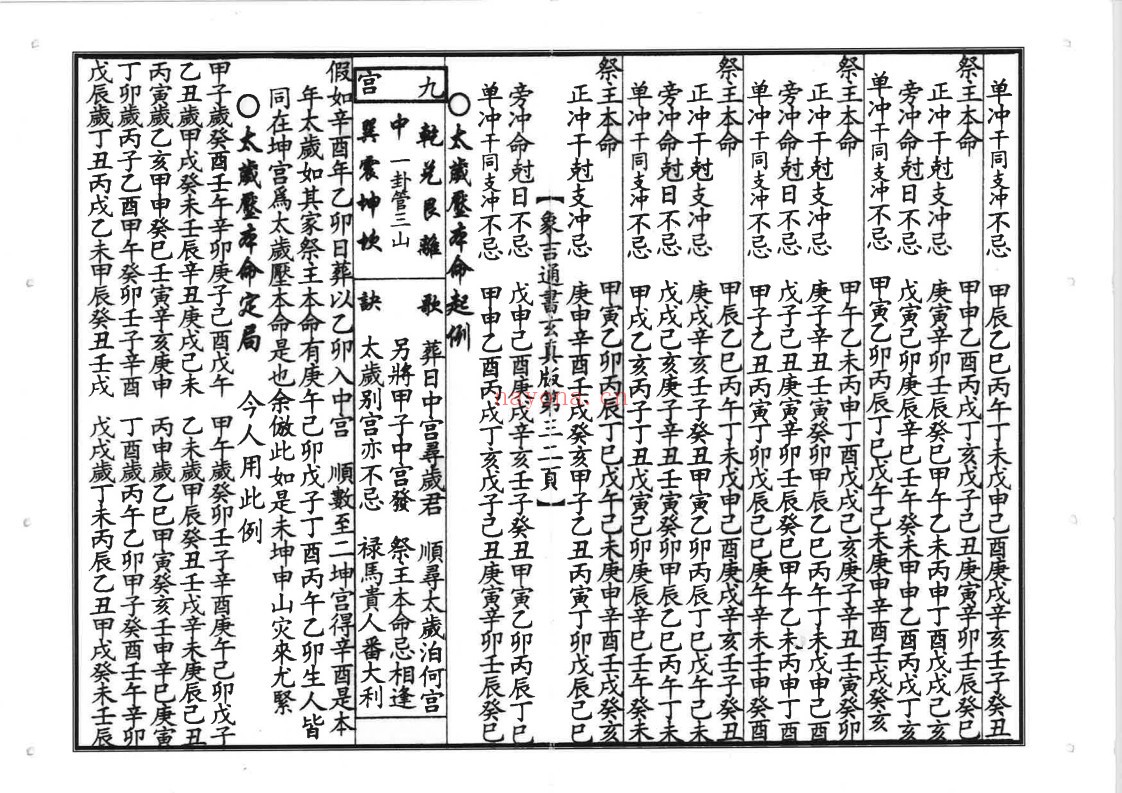 单冲干同支冲不忌 甲辰乙巳丙午丁未戊申己酉庚戌辛亥壬子癸丑
祭主本命 甲申乙酉丙戌丁亥戊子己丑庚寅辛卯壬辰癸巳
正冲干尅支冲忌 庚寅辛卯壬辰癸巳甲午乙未丙申丁酉戊戌己亥
旁冲命尅日不忌 戊寅己卯庚辰辛巳壬午癸未甲申乙酉丙戌丁亥
单冲干同支冲不忌 甲寅乙卯丙辰丁巳戊午己未庚申辛酉壬戌癸亥
祭主本命 甲午乙未丙申丁酉戊戌己亥庚子辛丑壬寅癸卯
正冲干尅支冲忌 庚子辛丑壬寅癸卯甲辰乙巳丙午丁未戊申己酉
旁冲命尅日不忌 戊子己丑庚寅辛卯壬辰癸巳甲午乙未丙申丁酉
单冲干同支冲不忌 甲子乙丑丙寅丁卯戊辰己巳庚午辛未壬申癸酉
祭主本命 甲辰乙巳丙午丁未戊申己酉庚戌辛亥壬子癸丑
正冲干尅支冲忌 庚戌辛亥壬子癸丑甲寅乙卯丙辰丁巳戊午己未
旁冲命尅日不忌 戊戌己亥庚子辛丑壬寅癸卯甲辰乙巳丙午丁未
单冲干同支冲不忌 甲戌乙亥丙子丁丑戊寅己卯庚辰辛巳壬午癸未
祭主本命 甲寅乙卯丙辰丁巳戊午己未庚申辛酉壬戌癸亥
正冲干尅支冲忌 庚申辛酉壬戌癸亥甲子乙丑丙寅丁卯戊辰己巳
【象吉通書玄真版第三二頁】
旁冲命尅日不忌 戊申己酉庚戌辛亥壬子癸丑甲寅乙卯丙辰丁巳
单冲干同支冲不忌 甲申乙酉丙戌丁亥戊子己丑庚寅辛卯壬辰癸巳
○太歲壓本命起例
九宫
乾兑艮離
中 一卦管三山
巽震坤坎
歌訣
葬日中宫尋歲君 順尋太歲泊何宫
另將甲子中宫發 祭主本命忌相逢
太歲别宫亦不忌 禄馬貴人番大利
假如辛酉年乙卯日葬以乙卯入中宫 順數至二坤宫得辛酉是本
年太歲如其家祭主本命有庚午己卯戊子丁酉丙午乙卯生人皆
同在坤宫爲太歲壓本命是也余倣此如是未坤申山灾來尤緊
○太歲壓本命定局 今人用此例
甲子歲癸酉壬午辛卯庚子己酉戊午 甲午歲癸卯壬子辛酉庚午己卯戊子
乙丑歲甲戌癸未壬辰辛丑庚戌己未 乙未歲甲辰癸丑壬戌辛未庚辰己丑
丙寅歲乙亥甲申癸巳壬寅辛亥庚申 丙申歲乙巳甲寅癸亥壬申辛巳庚寅
丁卯歲丙子乙酉甲午癸卯壬子辛酉 丁酉歲丙午乙卯甲子癸酉壬午辛卯
戊辰歲丁丑丙戌乙未甲辰癸丑壬戌 戊戌歲丁未丙辰乙丑甲戌癸未壬辰
nayona.cn